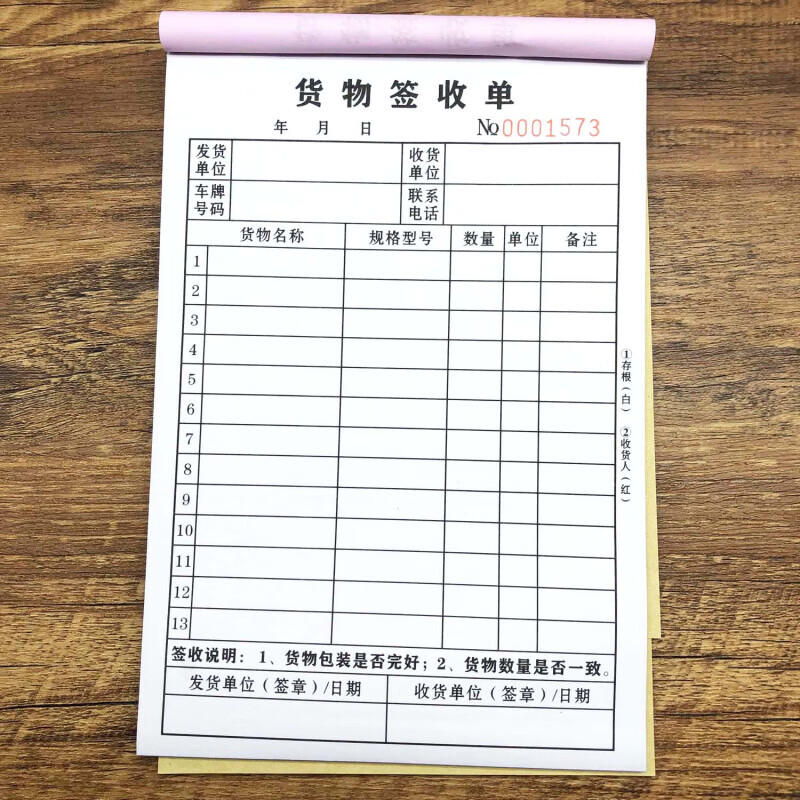 货物签收单
年 月 日 №0001573
发货单位 收货单位
车牌号码 联系电话
货物名称 规格型号 数量 单位 备注
1
2
3
4
5
6
7
8
9
10
11
12
13
①存根（白） ②收货人（红）
签收说明：1、货物包装是否完好；2、货物数量是否一致。
发货单位（签章）/日期 收货单位（签章）/日期